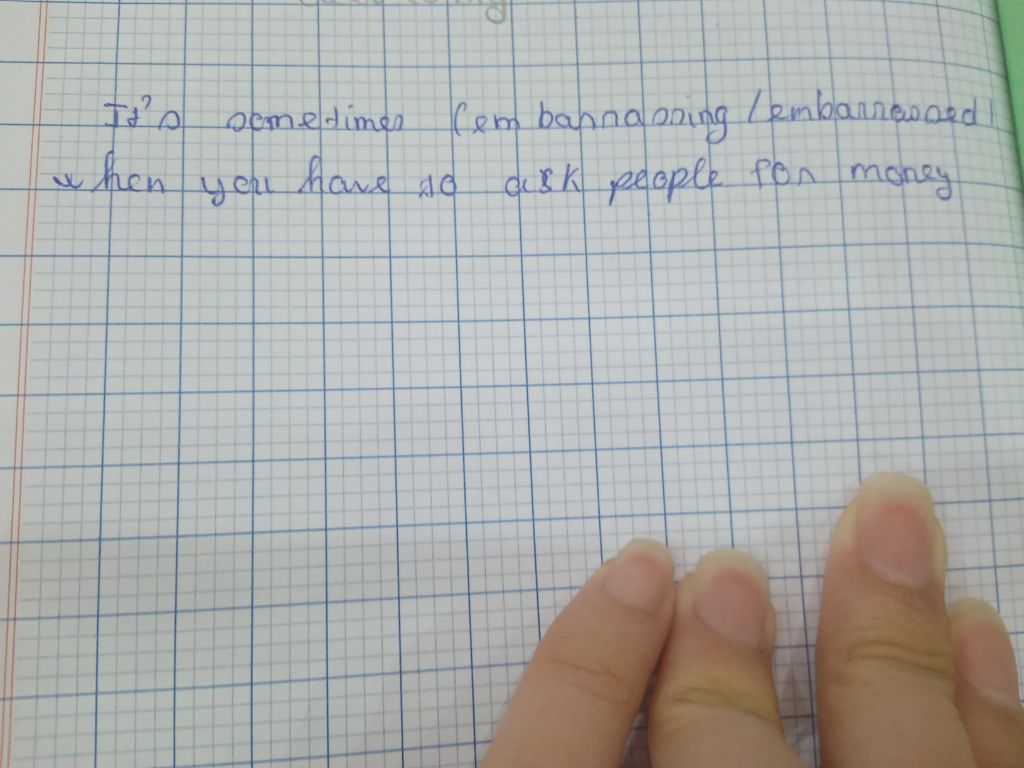 It's sometimes (embarrassing / embarrassed)
when you have to ask people for money